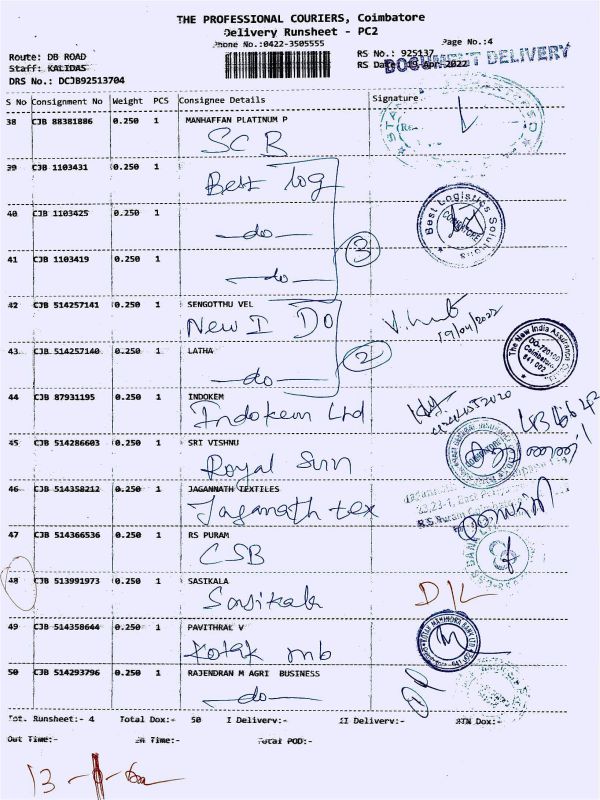 THE PROFESSIONAL COURIERS, Coimbatore
Delivery Runsheet - PC2
Phone No.:0422-3505555
Page No.:4
Route: DB ROAD
RS No.: 925137
DOCUMENT DELIVERY
Staff: KALIDAS
RS Date: 19 Apr 2022
DRS No.: DCJB92513704
S No Consignment No Weight PCS Consignee Details Signature
38 CJB 88381886 0.250 1 MANHAFFAN PLATINUM P
SCB
39 CJB 1103431 0.250 1
Best log
40 CJB 1103425 0.250 1
do
3
Best Logistics Solutions
COIMBATORE
41 CJB 1103419 0.250 1
do
42 CJB 514257141 0.250 1 SENGOTTHU VEL
New I DO
19/04/2022
43 CJB 514257140 0.250 1 LATHA
do
2
The New India Assurance
DO-720100
Coimbatore
641 002
44 CJB 87931195 0.250 1 INDOKEM
Indokem Ltd
45 CJB 514286603 0.250 1 SRI VISHNU
Royal Sun
46 CJB 514358212 0.250 1 JAGANNATH TEXTILES
Jaganath tex
R.S. Puram
47 CJB 514366536 0.250 1 RS PURAM
CSB
48 CJB 513991973 0.250 1 SASIKALA
Sasikala
D/L
49 CJB 514358644 0.250 1 PAVITHRAL V
Kotak mb
KOTAK MAHINDRA BANK LTD
50 CJB 514293796 0.250 1 RAJENDRAN M AGRI BUSINESS
do
Tot. Runsheet:- 4 Total Dox:- 50 I Delivery:- II Delivery:- RTN Dox:-
Out Time:- IN Time:- Total POD:-
13